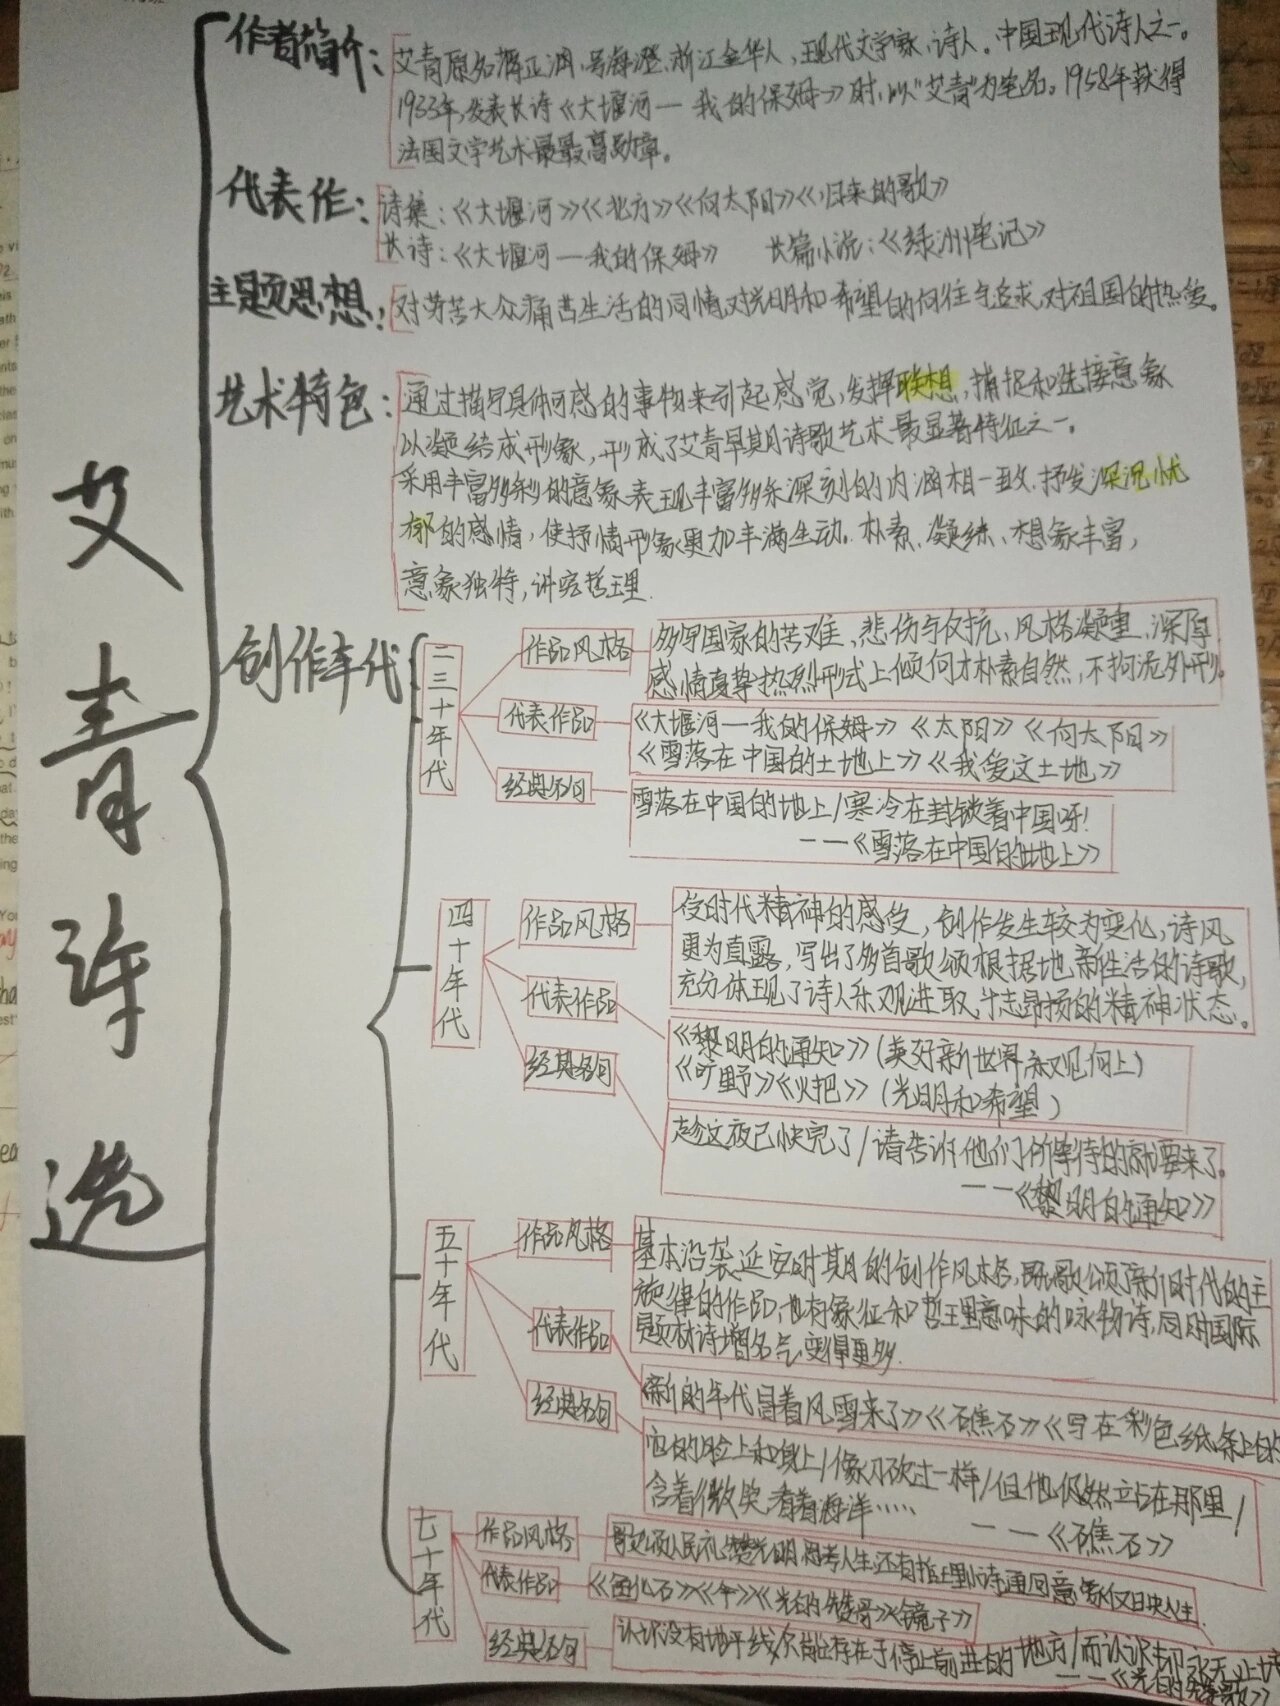 艾青诗选
作者简介:
艾青原名蒋正涵,号海澄,浙江金华人,现代文学家、诗人。中国现代诗人之一。
1933年,发表长诗《大堰河一我的保姆》时,以"艾青"为笔名。1958年获得
法国文学艺术最最高勋章。
代表作:
诗集:《大堰河》《北方》《向太阳》《归来的歌》
长诗:《大堰河一我的保姆》 长篇小说:《绿洲笔记》
主题思想:
对劳苦大众痛苦生活的同情,对光明和希望的向往与追求,对祖国的热爱。
艺术特色:
通过描写具体可感的事物来引起感觉,发挥联想,捕捉和选接意象
以凝结成形象,形成了艾青早期诗歌艺术最显著特征之一。
采用丰富多彩的意象表现丰富多条深刻的内涵相一致.抒发深沉忧
郁的感情,使抒情形象更加丰满生动.朴素、凝练、想象丰富,
意象独特,讲究哲理.
创作年代
二三十年代
作品风格
多写国家的苦难、悲伤与反抗、风格凝重、深厚
感情真挚热烈形式上倾向才朴素自然,不拘泥外形。
代表作品
《大堰河一我的保姆》《太阳》《向太阳》
《雪落在中国的土地上》《我爱这土地》
经典名句
雪落在中国的地上/寒冷在封锁着中国呀!
一一《雪落在中国的地上》
四十年代
作品风格
受时代精神的感受,创作发生较为变化,诗风
更为直露,写出了多首歌颂根据地新生活的诗歌,
充分体现了诗人乐观进取,斗志昂扬的精神状态。
代表作品
《黎明的通知》(美好新世界,积极向上)
《旷野》《火把》(光明和希望)
经典名句
趁这夜已快完了/请告诉他们所等待的就要来了。
一一《黎明的通知》
五十年代
作品风格
基本沿袭延安时期的创作风格,既歌颂新时代的主
旋律的作品,也有象征和哲理意味的咏物诗,同时国际
题材诗增名气变得更多.
代表作品
《新的年代冒着风雪来了》《礁石》《写在彩色纸条上的
经典名句
它的脸上和身上/像刀砍过一样/但他仍然站在那里/
含着微笑,看着海洋……
一一《礁石》
七十年代
作品风格
歌颂人民礼赞光明,思考人生,还有哲理小诗通过意象反映人生.
代表作品
《鱼化石》《伞》《光的赞歌》《镜子》
经典名句
认识没有地平线/存在于停止前进的地方/而认识却永无止境
一一《光的赞歌》